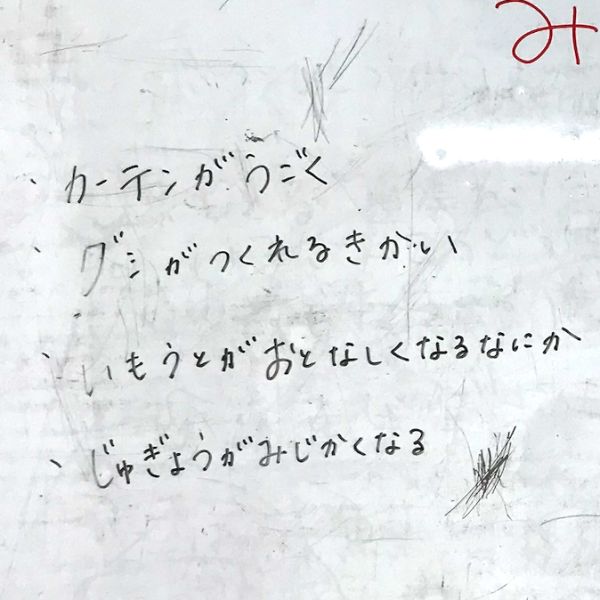 み
、カーテンがうごく
、グミがつくれるきかい
、いもうとがおとなしくなるなにか
、じゅぎょうがみじかくなる